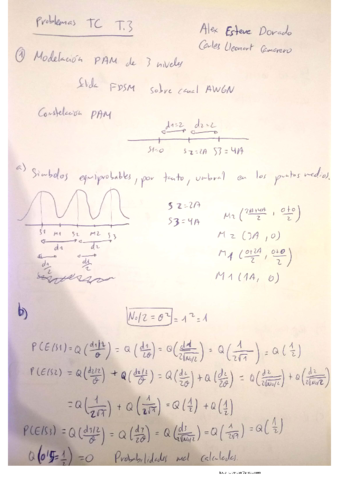 Problemas TC T.3
Alex Esteve Dorado
Carlos
① Modelación PAM de 3 niveles
Salida FDSM sobre canal AWGN
Constelación PAM
d1=2 d2=2
S1=0 S2=2A S3=4A
a) Símbolos equiprobables, por tanto, umbral en los puntos medios.
S2=2A
S3=4A
M2 (2A+4A/2, 0+0/2)
M2 = (3A, 0)
M1 (0+2A/2, 0+0/2)
M1 (1A, 0)
S1 M1 S2 M2 S3
d1 d2
d1/2 d2/2
b)
N0/2 = θ² = 1² = 1
P(E/S1) = Q(d1/2/θ) = Q(d1/2θ) = Q(d1/2√N0/2) = Q(1/2√1) = Q(1/2)
P(E/S2) = Q(d1/2/θ) + Q(d2/2/θ) = Q(d1/2θ) + Q(d2/2θ) = Q(d1/2√N0/2) + Q(d2/2√N0/2)
= Q(1/2√1) + Q(1/2√1) = Q(1/2) + Q(1/2)
P(E/S3) = Q(d2/2/θ) = Q(d2/2θ) = Q(d2/2√N0/2) = Q(1/2√1) = Q(1/2)
Q(0'5=1/2) = 0 Probabilidades mal calculadas